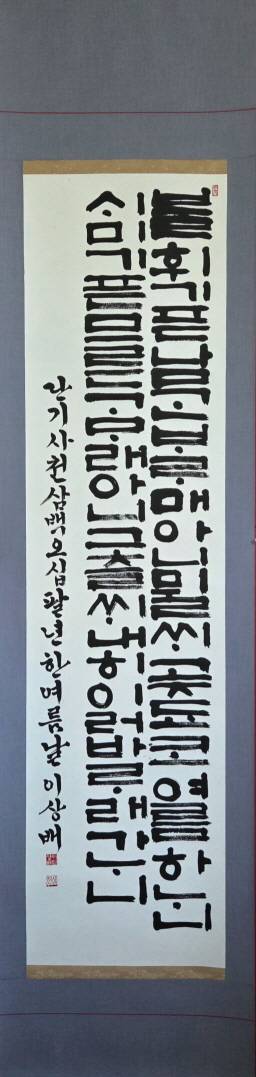 불휘기픈남ᄀᆞᆫᄇᆞᄅᆞ매아니뮐ᄊᆡ곶됴코여름하ᄂᆞ니
ᄉᆡ미기픈므른ᄀᆞᄆᆞ래아니그츨ᄊᆡ내히이러바ᄅᆞ래가ᄂᆞ니
단기사천삼백오십팔년한여름날이상배